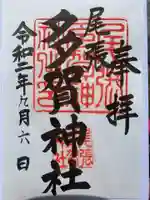 奉拝
尾張
多賀神社
令和二年九月六日
尾張